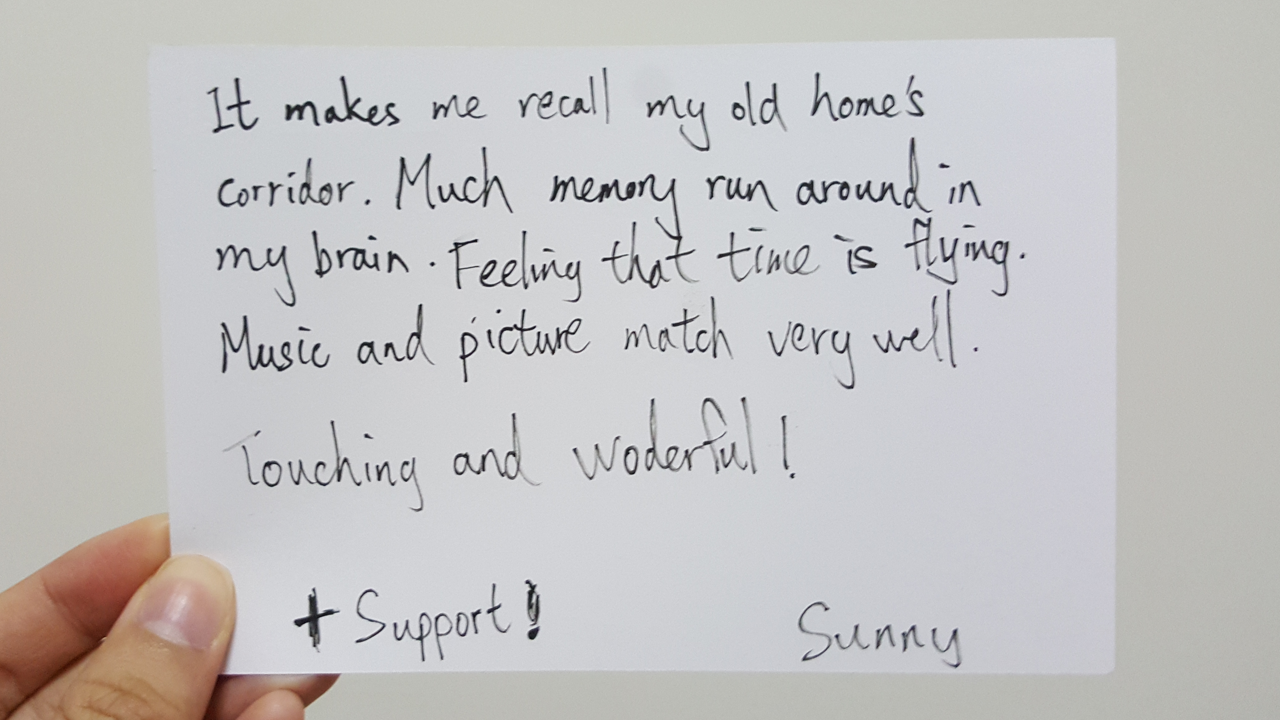 It makes me recall my old home's
corridor. Much memory run around in
my brain. Feeling that time is flying.
Music and picture match very well.
Touching and woderful!
+ Support!
Sunny